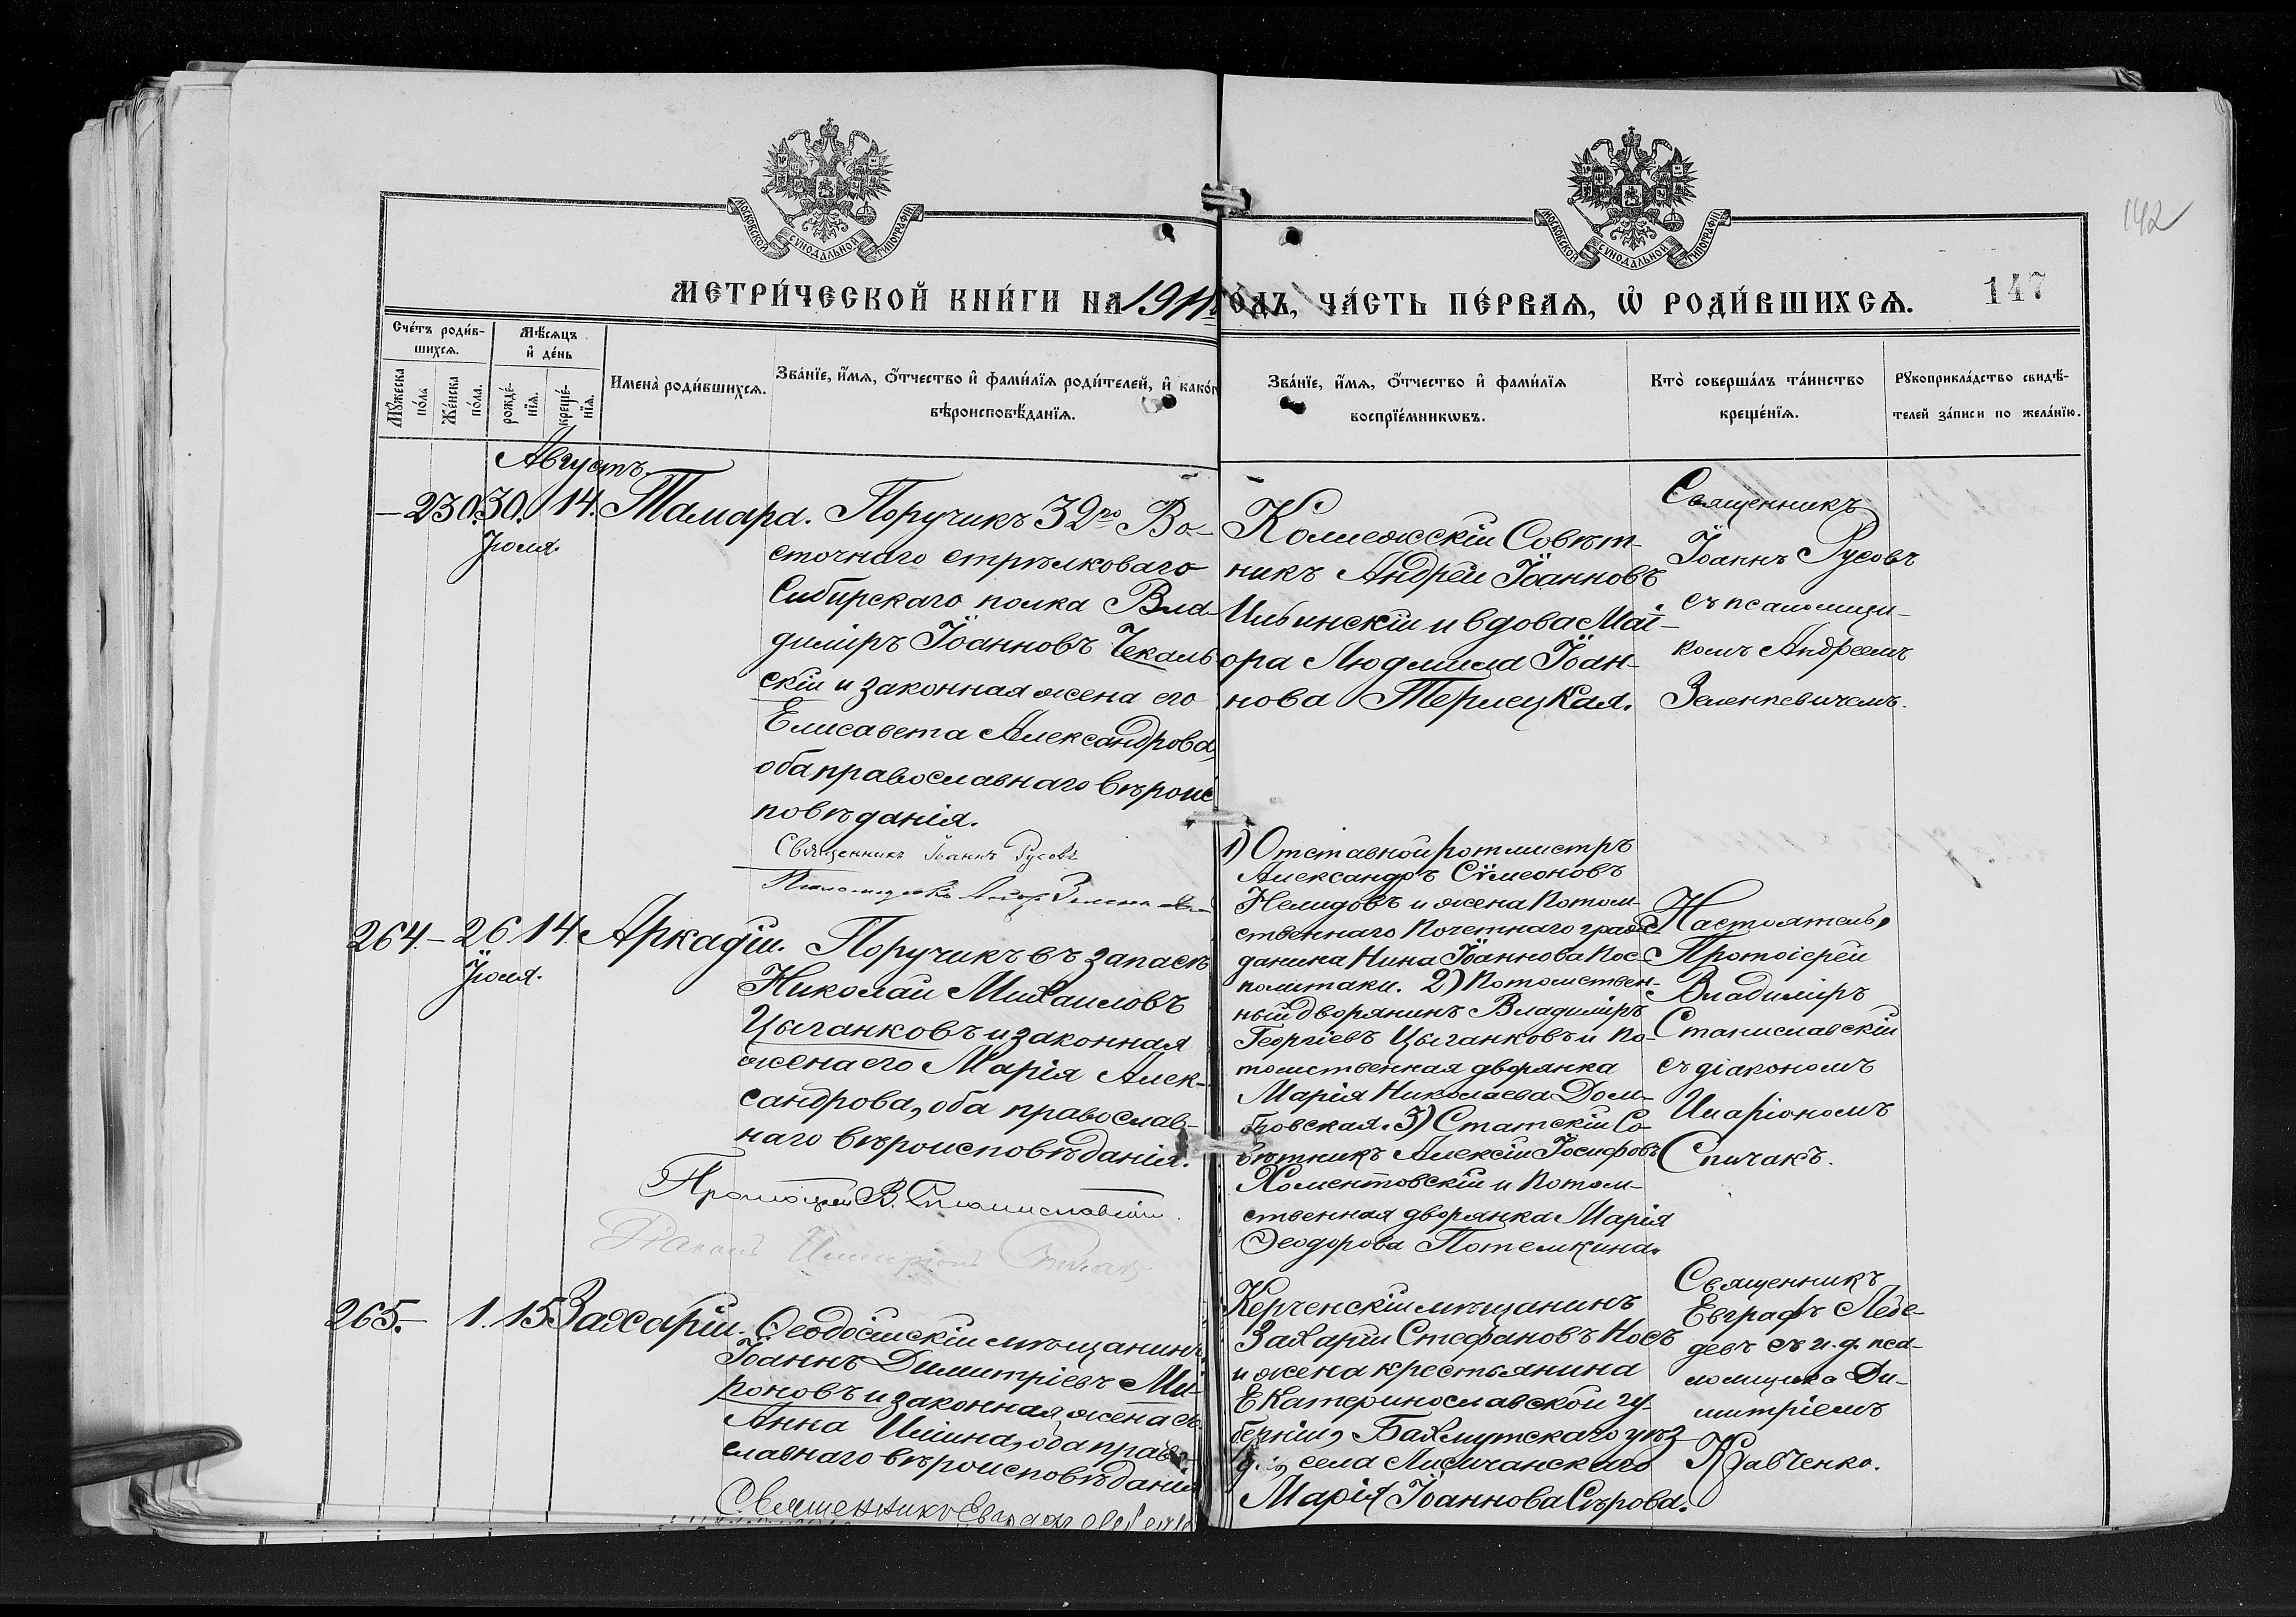 МОСКОВСКОЙ СУНОДАЛЬНОЙ ТИПОГРАФІИ
МОСКОВСКОЙ СУНОДАЛЬНОЙ ТИПОГРАФІИ
142
147
МЕТРИ́ЧЕСКОЙ КНИ́ГИ НА 1911 ГОДЪ, ЧА́СТЬ ПЕ́РВАѦ, Ѽ РОДИ́ВШИХСѦ.
Сче́тъ роди́в-
шихсѧ.
Мꙋ́жеска по́ла.
Же́нска по́ла.
Мѣ́сяцъ
и҆ де́нь
рожде́-
нїѧ.
креще́-
нїѧ.
Имена̀ роди́вшихсѧ.
Зва́нїе, и҆́мѧ, ѻ҆́тчество и҆ фами́лїѧ роди́телей, и҆ како́гѡ
вѣроисповѣ́данїѧ.
Зва́нїе, и҆́мѧ, ѻ҆́тчество и҆ фами́лїѧ
воспрїе́мникѡвъ.
Кто̀ соверша́лъ та́инство
креще́нїѧ.
Рꙋкоприкла́дство свидѣ́-
телей за́писи по жела́нїю.
Августъ.
– 230. 30. 14. Тамара.
Іюля.
Поручикъ 32го Во-
сточнаго стрѣлковаго
Сибирскаго полка Вла-
диміръ Іоанновъ Чекаль
скій и законная жена его
Елисавета Александрова,
оба православнаго вѣроис
повѣданія.
Священникъ Іоаннъ Русовъ
Коллежскій Совѣт-
никъ Андрей Іоанновъ
Ильинскій и вдова Маі-
ора Людмила Іоан-
нова Терлецкая.
Священникъ
Іоаннъ Русовъ
съ псаломщи-
комъ Андреемъ
Зеленкевичемъ.
264. – 26 14. Аркадій.
Іюля.
Поручикъ въ запасѣ
Николай Михаиловъ
Цыганковъ и законная
жена его Марія Алек-
сандрова, оба православ-
наго вѣроисповѣданія.
Протоіерей В. Станиславскій.
Діаконъ Иларіонъ Спичакъ
1) Отставной ротмистръ
Александръ Сѵмеоновъ
Нелидовъ и жена Потом-
ственнаго Почетнаго граж-
данина Нина Іоаннова Пос-
политаки. 2) Потомствен-
ный дворянинъ Владиміръ
Георгіевъ Цыганковъ и По-
томственная дворянка
Марія Николаева Дом-
бровская. 3) Статскій Со-
вѣтникъ Алексій Іосифовъ
Хоментовскій и Потом-
ственная дворянка Марія
Ѳеодорова Потемкина.
Настоятель,
Протоіерей
Владиміръ
Станиславскій
съ діакономъ
Иларіономъ
Спичакъ.
265. – 1. 15 Захарій.
Ѳеодосійскій мѣщанинъ
Іоаннъ Димитріевъ Ми-
роновъ и законная жена его
Анна Ильина, оба право-
славнаго вѣроисповѣданія
Священникъ Евграфъ Лебедевъ
Керченскій мѣщанинъ
Захарій Стефановъ Носъ
и жена крестьянина
Екатеринославской гу-
берніи, Бахмутскаго уѣз-
да, села Лисичанскаго
Марія Іоаннова Сѣрова.
Священникъ
Евграфъ Лебе-
девъ съ и. д. пса-
ломщика Ди-
митріемъ
Кравченко.